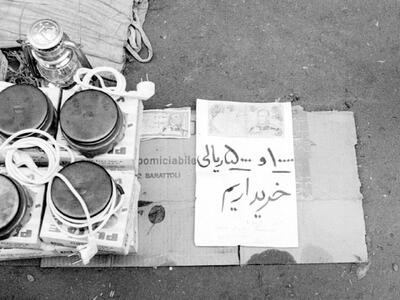 ۱۰۰۰۰ و ۵۰۰۰ ریالی
خریداریم
pomiciabile
2 BARATTOLI